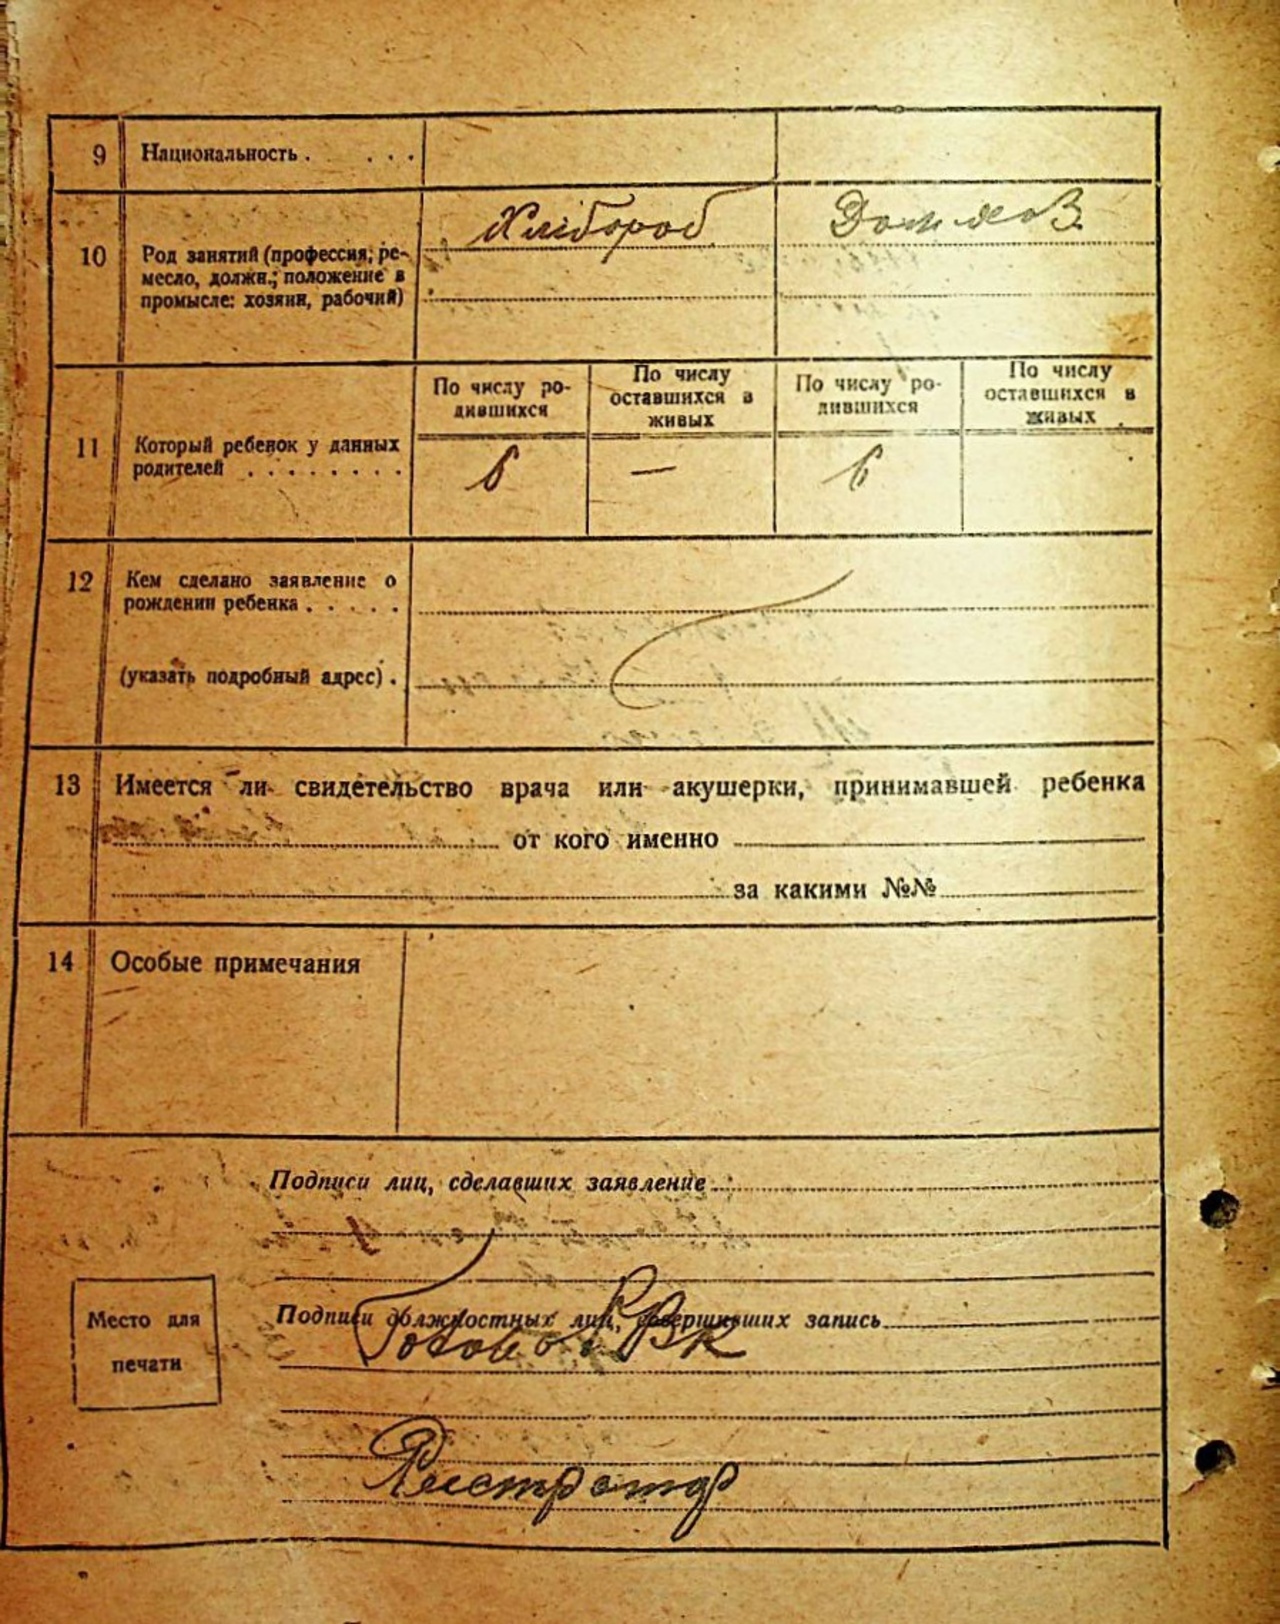 9 Национальность . . . .
10 Род занятий (профессия, ре-
месло, должн.; положение в
промысле: хозяин, рабочий)
Хлібороб
Дом хоз
11 Который ребенок у данных
родителей . . . . . . . .
По числу ро-
дившихся
По числу
оставшихся в
живых
По числу ро-
дившихся
По числу
оставшихся в
живых
6 — 6
12 Кем сделано заявление о
рождении ребенка . . . . .
(указать подробный адрес) .
13 Имеется ли свидетельство врача или акушерки, принимавшей ребенка
от кого именно
за какими №№
14 Особые примечания
Подписи лиц, сделавших заявление
Место для
печати
Подписи должностных лиц, совершивших запись
Голова
Реєстратор